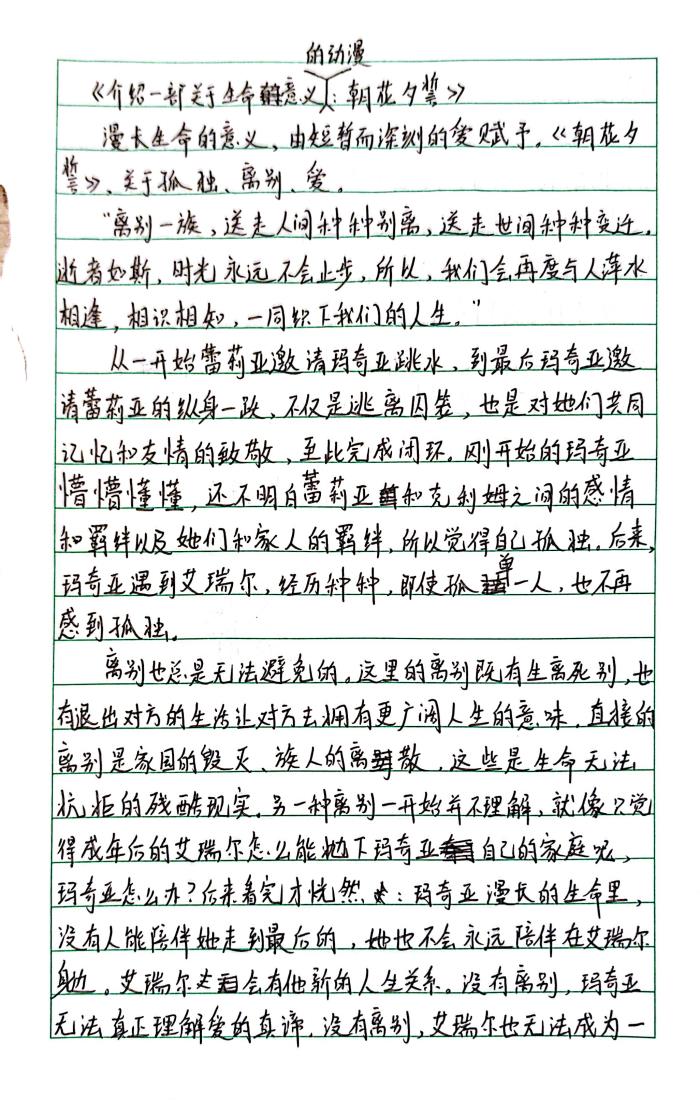 的动漫
《介绍一部关于生命意义：朝花夕誓》
漫长生命的意义，由短暂而深刻的爱赋予。《朝花夕
誓》，关于孤独、离别、爱。
“离别一族，送走人间种种别离，送走世间种种变迁。
逝者如斯，时光永远不会止步，所以，我们会再度与人萍水
相逢，相识相知，一同织下我们的人生。”
从一开始蕾莉亚邀请玛奇亚跳水，到最后玛奇亚邀
请蕾莉亚的纵身一跃，不仅是逃离囚笼，也是对她们共同
记忆和友情的致敬，至此完成闭环。刚开始的玛奇亚
懵懵懂懂，还不明白蕾莉亚和克利姆之间的感情
和羁绊以及她们和家人的羁绊，所以觉得自己孤独。后来，
玛奇亚遇到艾瑞尔，经历种种，即使孤单一人，也不再
感到孤独。
离别也总是无法避免的。这里的离别既有生离死别，也
有退出对方的生活让对方去拥有更广阔人生的意味。直接的
离别是家园的毁灭、族人的离散，这些是生命无法
抗拒的残酷现实。另一种离别一开始并不理解，就像只觉
得成年后的艾瑞尔怎么能抛下玛奇亚自己的家庭呢，
玛奇亚怎么办？后来看完才恍然：玛奇亚漫长的生命里，
没有人能陪伴她走到最后的，她也不会永远陪伴在艾瑞尔
身边。艾瑞尔会有他新的人生关系。没有离别，玛奇亚
无法真正理解爱的真谛，没有离别，艾瑞尔也无法成为一